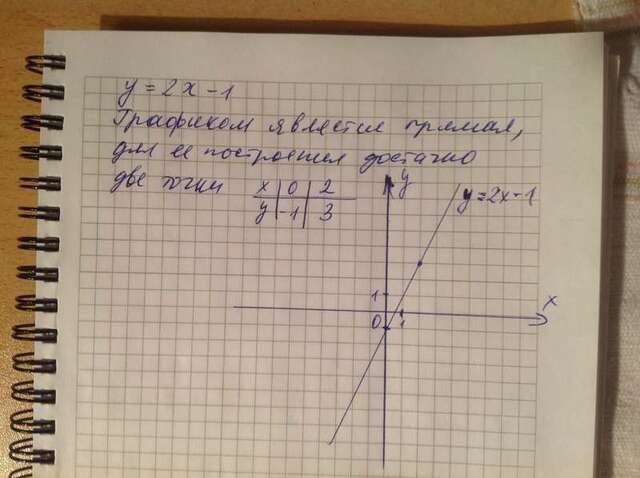 y = 2x - 1
Графиком является прямая,
для её построения достаточно
две точки
x | 0 | 2
y | -1 | 3
y
y = 2x - 1
1
0
1
x